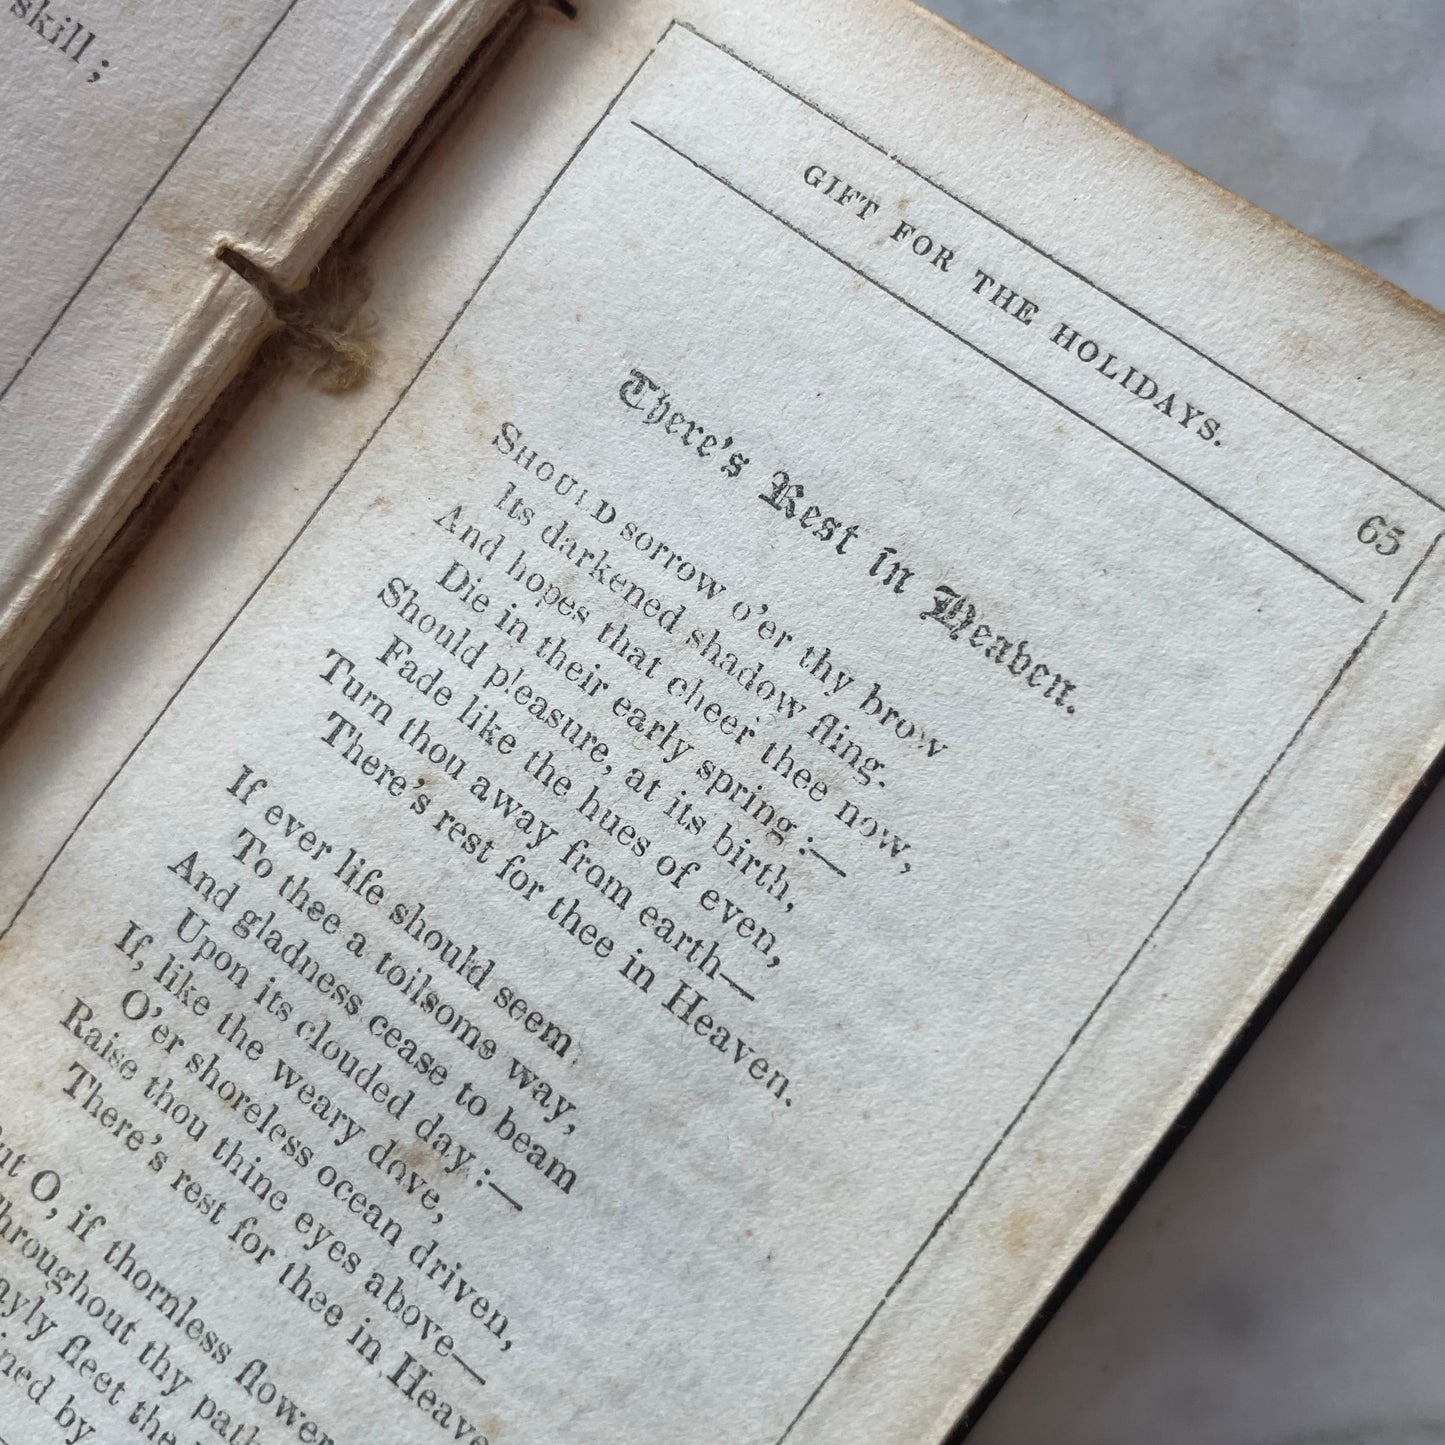 skill;
GIFT FOR THE HOLIDAYS.
65
There's Rest in Heaven.
SHOULD sorrow o'er thy brow
Its darkened shadow fling.
And hopes that cheer thee now,
Die in their early spring:—
Should pleasure, at its birth,
Fade like the hues of even,
Turn thou away from earth—
There's rest for thee in Heaven.
If ever life should seem
To thee a toilsome way,
And gladness cease to beam
Upon its clouded day:—
If, like the weary dove,
O'er shoreless ocean driven,
Raise thou thine eyes above—
There's rest for thee in Heave
ut O, if thornless flower
hroughout thy path
ayly fleet the
ned by